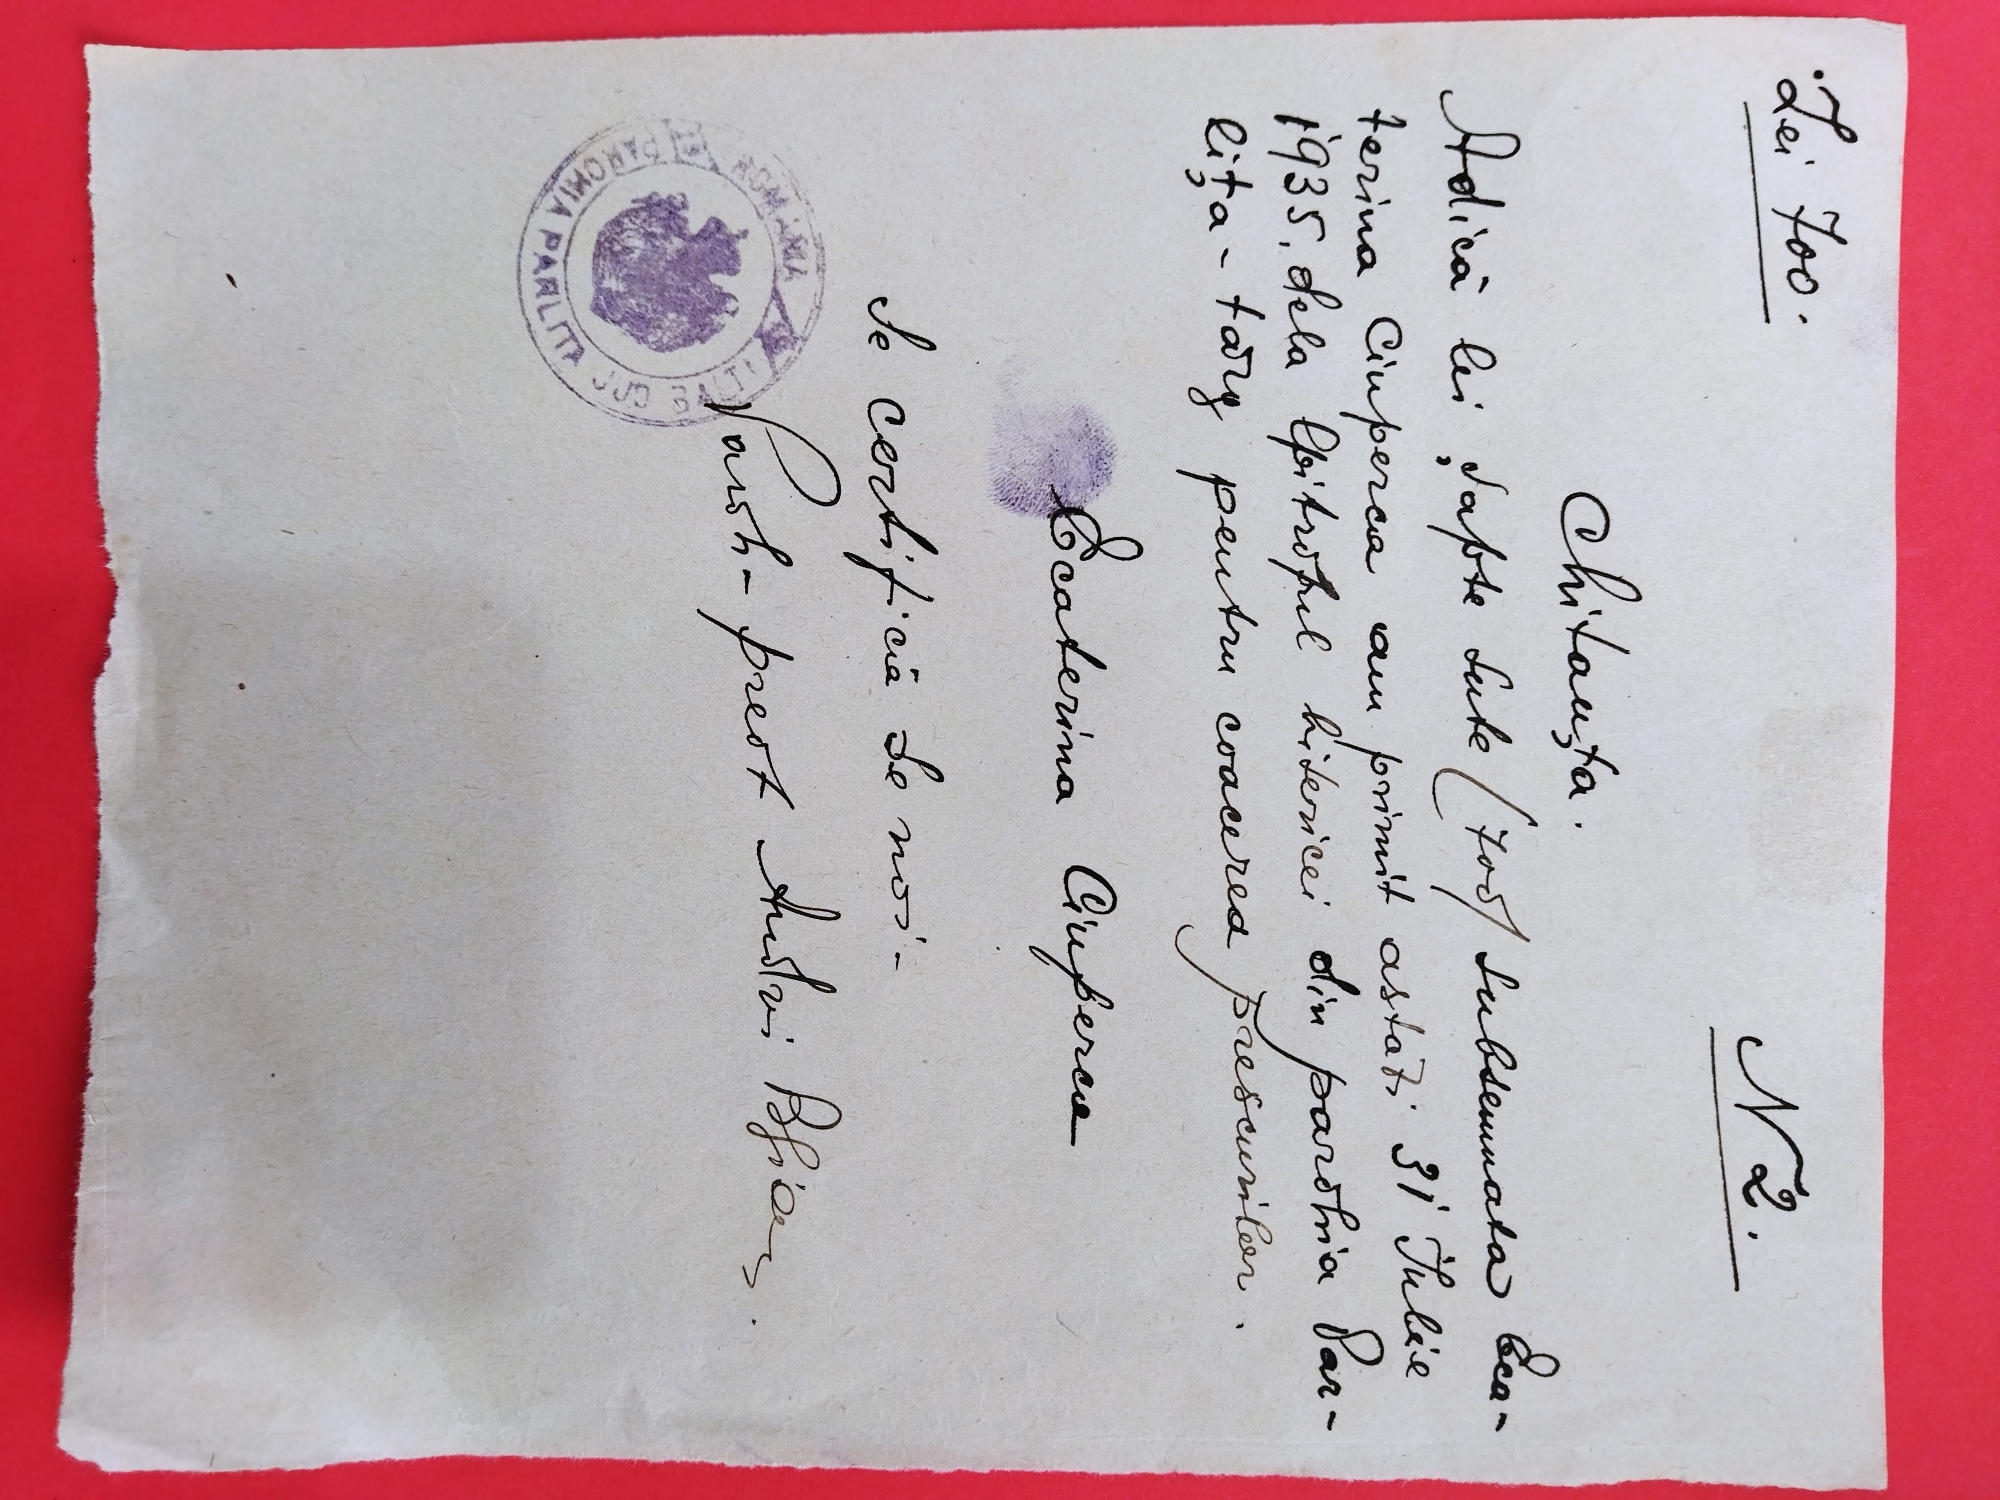 Lei 700.
N 2.
Chitanța.
Adică lei șapte sute (700) subsemnata Eca-
terina Ciupercă am primit astăzi 31 Iulie
1935. dela Epitropul bisericei din parohia Par-
lița-târg pentru coacerea prescurilor.
Ecaterina Ciupercă
Se certifică de noi.-
Paroh-preot Andrei
ROMÂNIA
PAROHIA PARLITA JUD BALTI